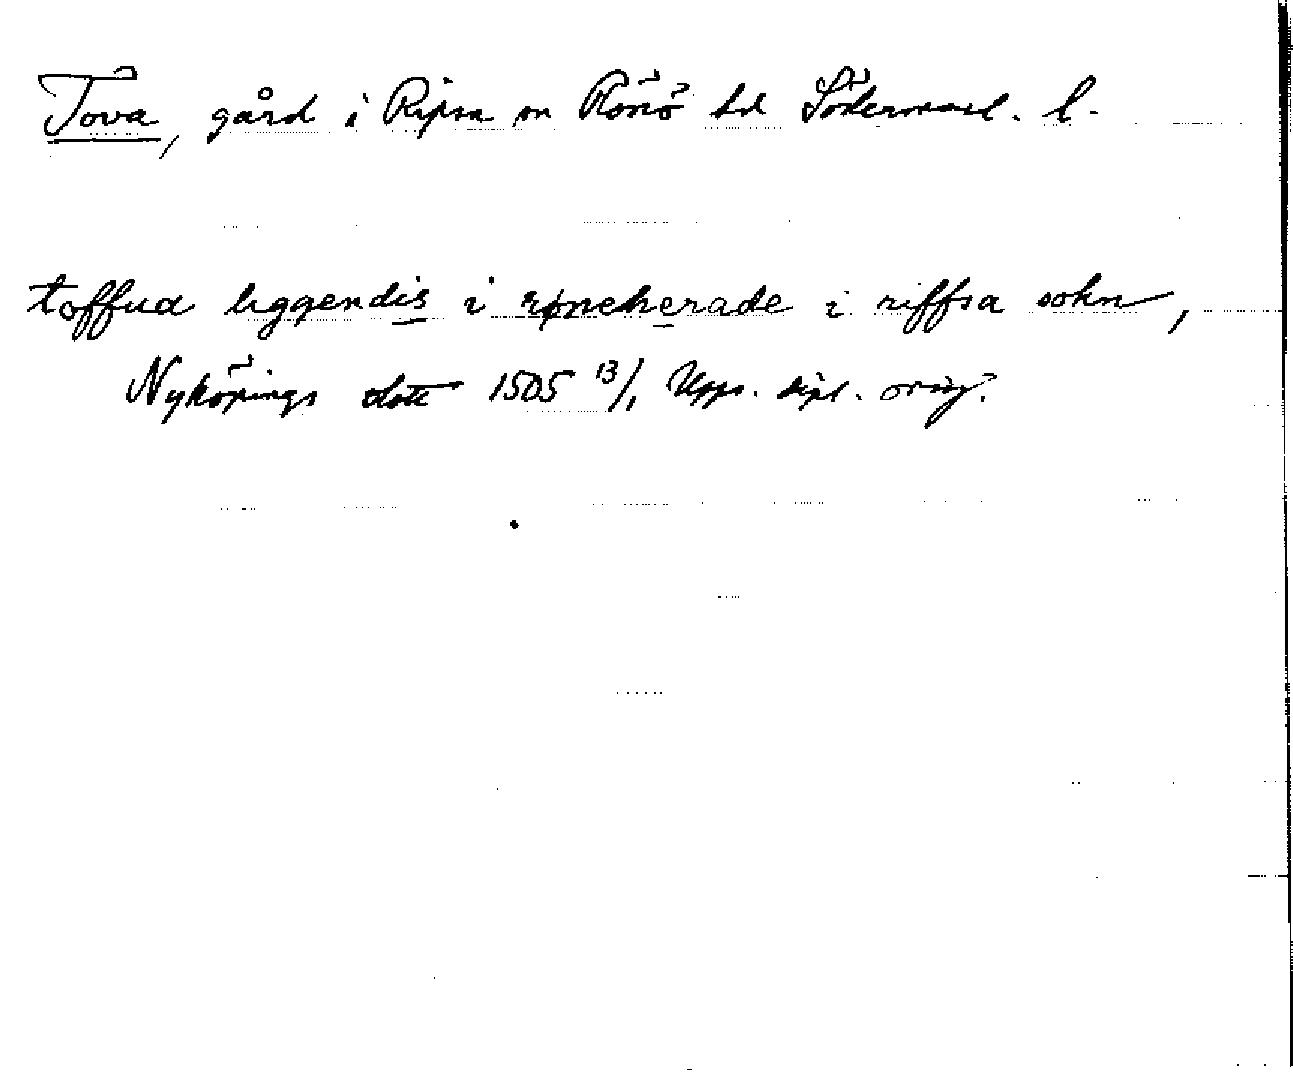 Tova, gård i Ripsa sn Rönö hd Södermanl. l.
toffua liggendis i røneherade i riffsa sokn,
Nyköpings dstr 1505 13/1 Upps. dipl. orig.